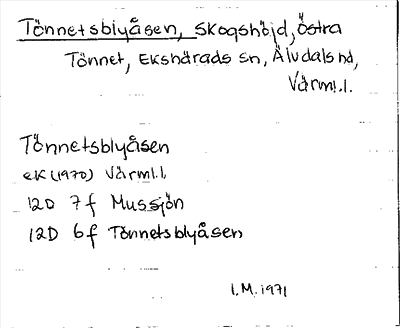 Tönnetsblyåsen, skogshöjd, östra
Tönnet, Ekshärads sn, Älvdals hd,
Värml.l.
Tönnetsblyåsen
ek (1970) Värml.l.
12D 7f Mussjön
12D 6f Tönnetsblyåsen
I.M. 1971